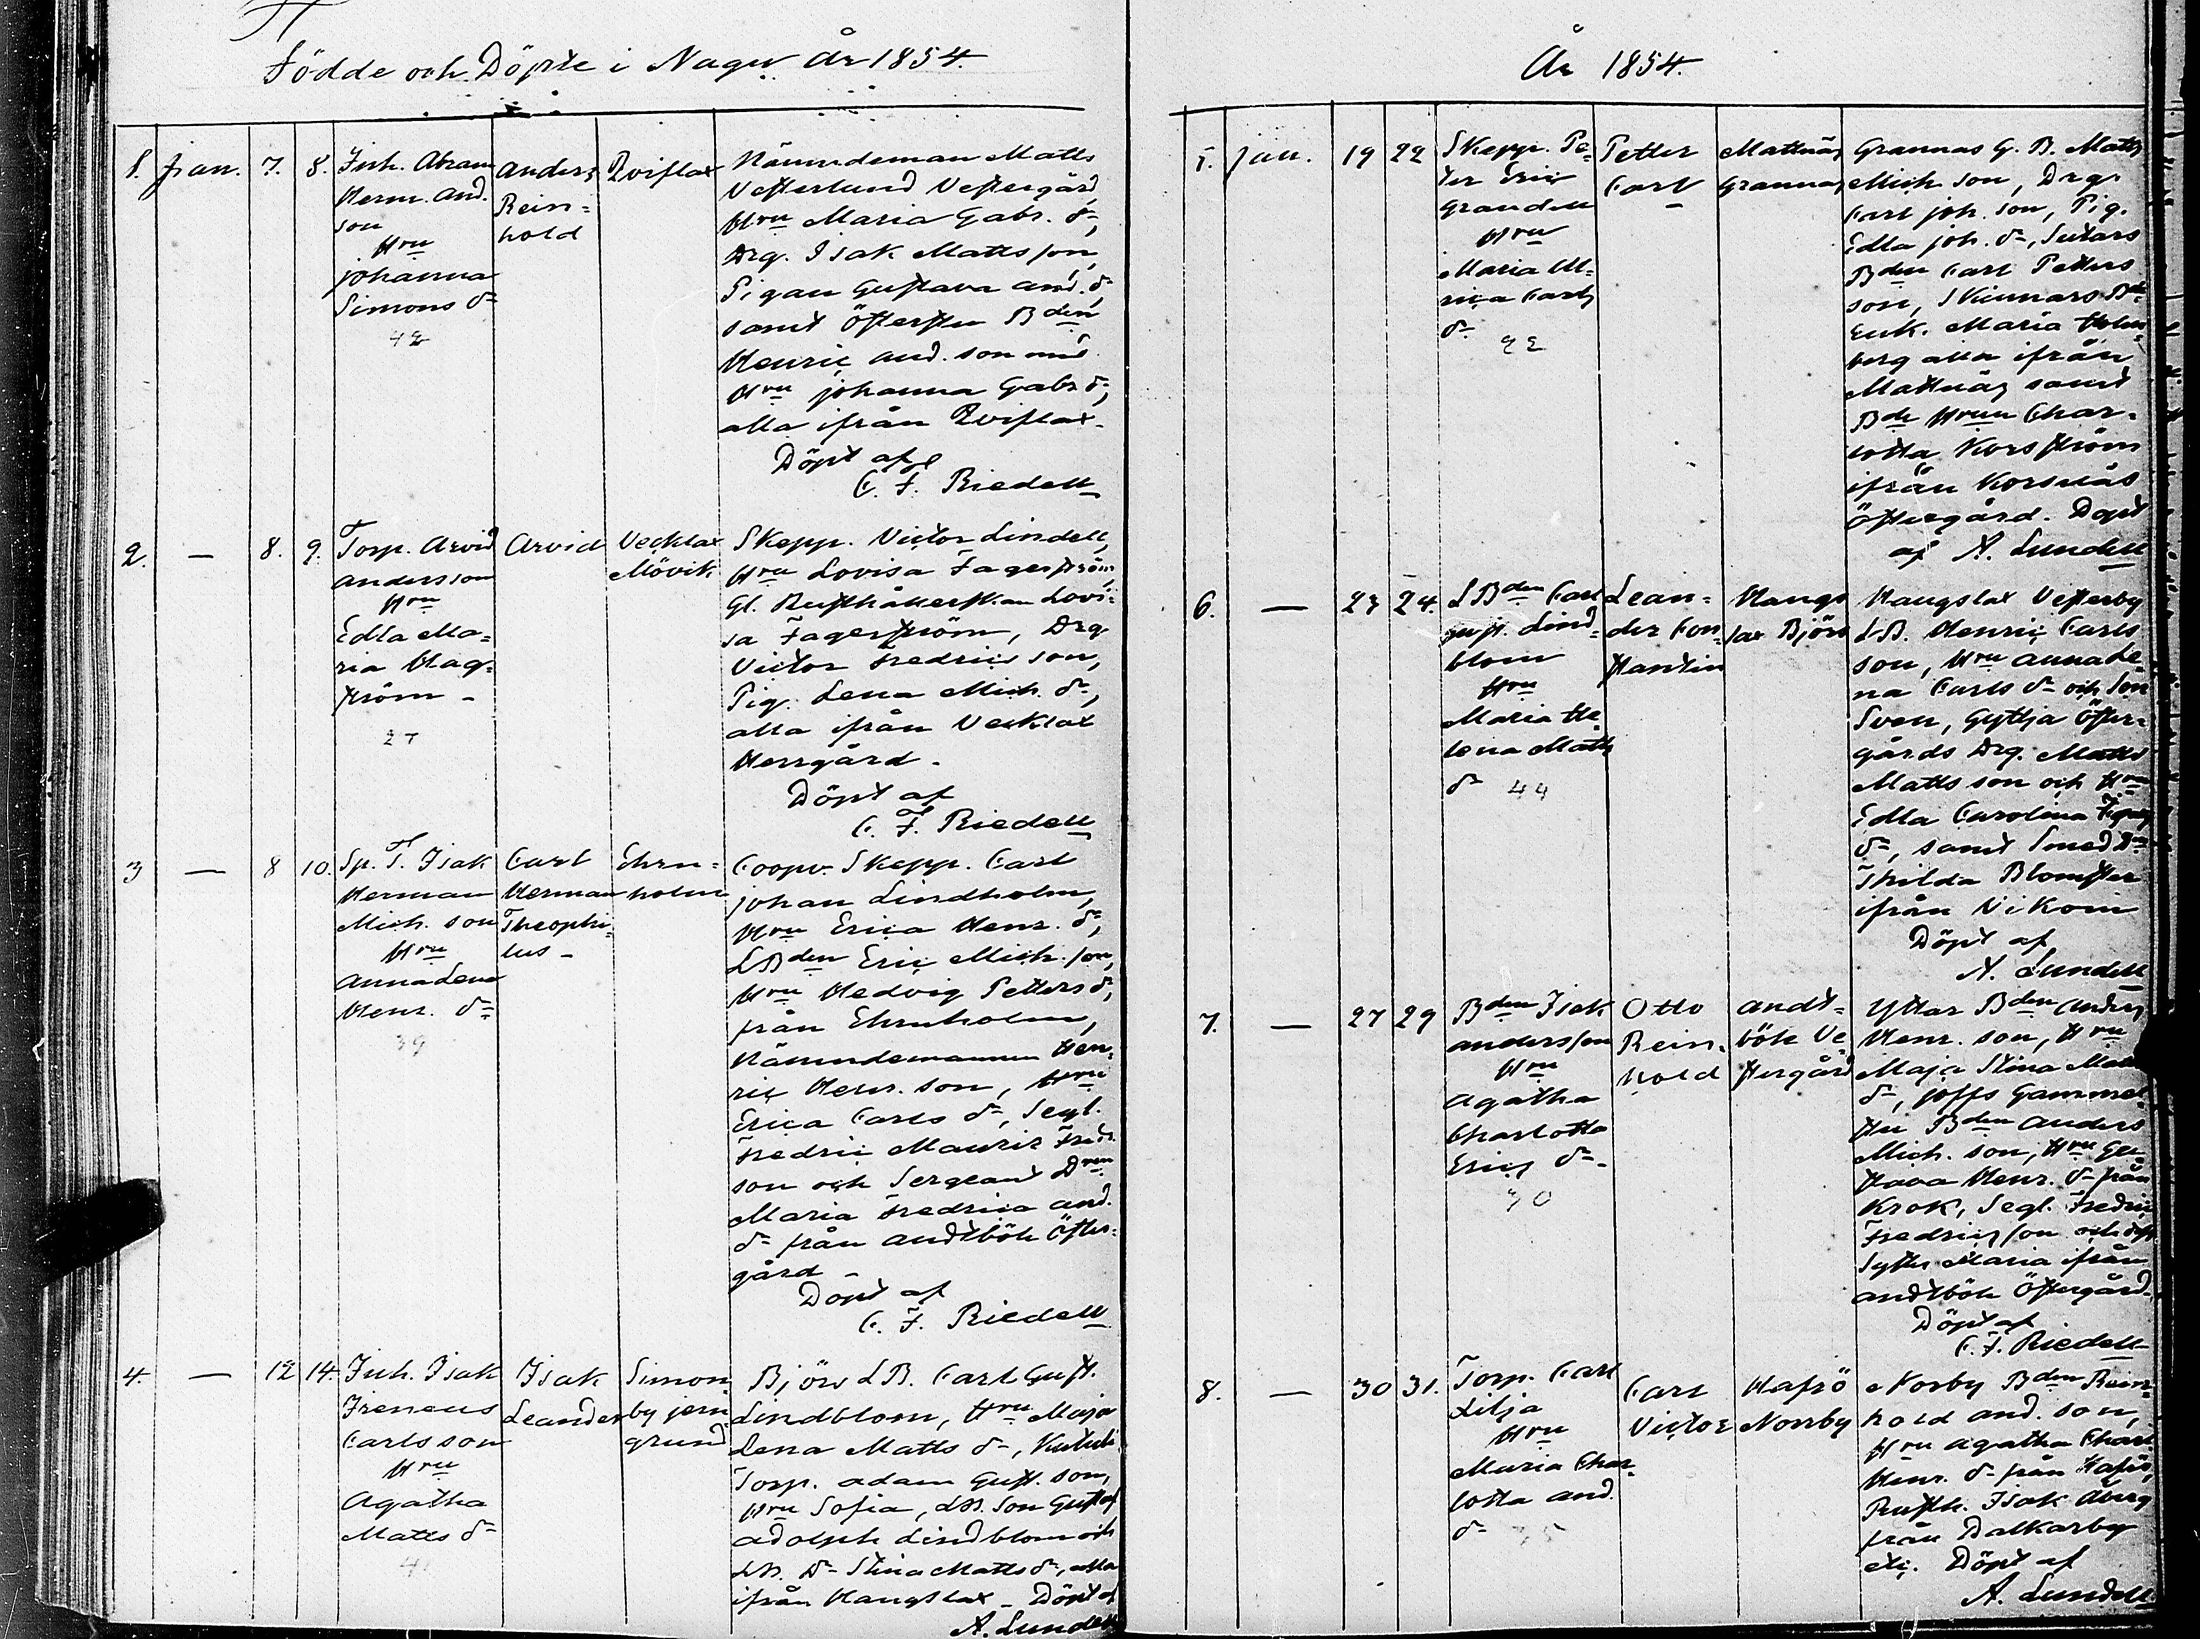 Födde och Döpte i Nagu år 1854.
1. Jan. 7. 8.
Inh. Abram
Herm. And.
son
Hru
Johanna
Simons dr
42
Anders
Rein=
hold
Qviflax
Nämndeman Matts
Vesterlund Vestergård,
Hru Maria Gabr. dr,
Drg. Isak Mattsson,
Pigan Gustava And. dr
samt Östersten Bden
Henric And. son med
Hru Johanna Gabr dr,
alla ifrån Qviflax.
Döpt af
C. F. Riedell
2. — 8. 9.
Torp. Arvid
Andersson
Hru
Edla Ma=
ria Hag=
ström
27
Arvid
Vecklax
Mövik
Skepp. Victor Lindell,
Hru Lovisa Fagerström,
Gl. Rusthållerskan Lovi=
sa Fagerström, Drg
Victor Fredrics son,
Pig. Lena Mich. dr,
alla ifrån Vecklax
Herrgård.
Döpt af
C. F. Riedell
3 — 8 10.
Sp. T. Isak
Herman
Mich. son
Hru
Anna Lena
Henr. dr
39
Carl
Herman
Theophi=
lus
Ehrn=
holm
Coopv. Skepp. Carl
Johan Lindholm,
Hru Erica Henr. dr,
LBden Eric Mich. son,
Hru Hedvig Petters dr,
från Ehrnholm,
Nämndemannen Hen=
ric Henr. son, Hru
Erica Carls dr, Segl.
Fredric Mauriz Fredr.
son och Sergeant Dren
Maria Fredrica And.
dr från Andtböle Öster=
gård
Döpt af
C. F. Riedell
4. — 12 14.
Inh. Isak
Ireneus
Carls son
Hru
Agatha
Matts dr
Isak
Leander
Simon
by jern
grund
Björs LB. Carl Gust.
Lindblom, Hru Maja
Lena Matts dr,
Torp. Adam Gust. son,
Hru Sofia, LB. Son Gustaf
Adolph Lindblom och
LB. Dr Stina Matts dr, alla
ifrån Hangslax. Döpt af
A. Lundell
År 1854.
5. Jan. 19 22
Skepp. Pe=
ter Eric
Grandell
Hru
Maria Ul=
rica Carls
dr
22
Petter
Carl
Mattnäs
Grannas
Grannas G. B. Matts
Mich son, Drg.
Carl Joh. son, Pig.
Edla Joh. dr, Sutars
Bden Carl Petters
son, Skinnars Bde
Enk. Maria Holm=
berg alla ifrån
Mattnäs samt
Bde Hrun Char=
lotta Korsström
ifrån Korsnäs
Östergård. Döpt
af A. Lundell
6. — 23 24.
LBden Carl
Gust. Lind=
blom
Hru
Maria He=
lena Matts
dr 44
Lean=
der Con=
stantin
Hangs
lax Björs
Hangslax Vesterby
LB. Henric Carls
son, Hru Anna Le=
na Carls dr och Son
Sven, Gyttja Öster=
gårds Drg. Matts
Matts son och Hru
Edla Carolina
dr, samt Smed Dr
Thilda Blomster
ifrån Vikom
Döpt af
A. Lundell
7. — 27 29
Bden Isak
Andersson
Hru
Agatha
Charlotta
Erics dr
30
Otto
Rein=
hold
Andt=
böle Ve
stergård
Yttar Bden Anders
Henr. son, Hru
Maja Stina Matts
dr, Joffs Gammel
Bden Anders
Mich. son, Hru Gu=
stava Henr. dr från
Krok, Segl. Fredric
Fredrics son och
Syster Maria ifrån
Andtböle Östergård.
Döpt af
C. F. Riedell
8. — 30 31.
Torp. Carl
Lilja
Hru
Maria Char=
lotta And.
dr 35
Carl
Victor
Hafsö
Norrby
Norby Bden Rein=
hold And. son,
Hru Agatha Charl
Henr. dr från Hafsö,
Rusth. Isak Åberg
från Dalkarby
etc. Döpt af
A. Lundell